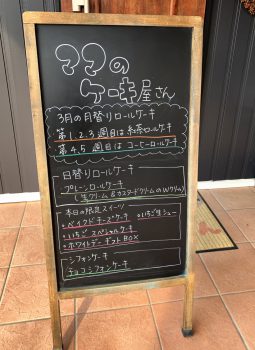 ママの
ケーキ屋さん
3月の月替りロールケーキ
第1.2.3週目は紅茶ロールケーキ
第4.5週目はコーヒーロールケーキ
日替りロールケーキ
プレーンロールケーキ
(生クリーム&カスタードクリームのWクリーム)
本日の限定スイーツ
・ベイクドチーズケーキ ・いちご生シュー
・いちごスペシャルケーキ
・ホワイトデーギフトBOX
シフォンケーキ
チョコシフォンケーキ